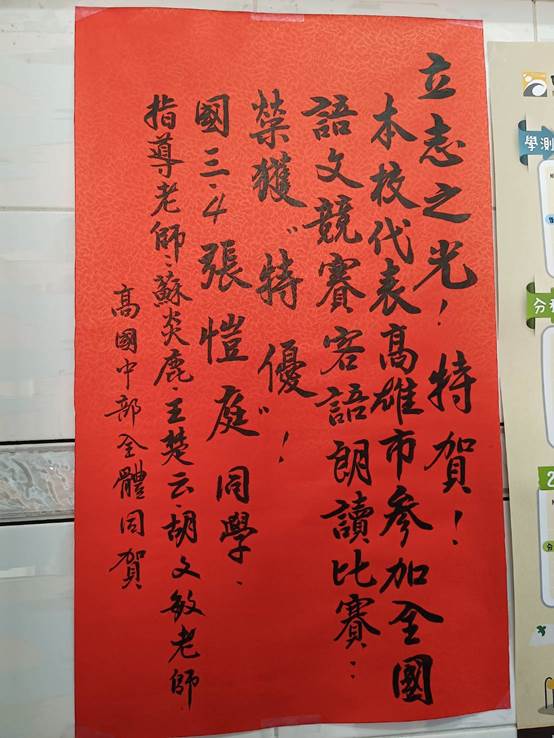 立志之光！特賀！
本校代表高雄市參加全國
語文競賽客語朗讀比賽：
榮獲"特優"！
國三.4張愷庭同學.
指導老師：蘇炎鹿.王楚云.胡文敏老師
高國中部全體同賀
學測
分
2